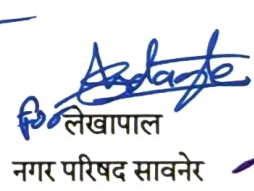 लेखापाल
नगर परिषद सावनेर